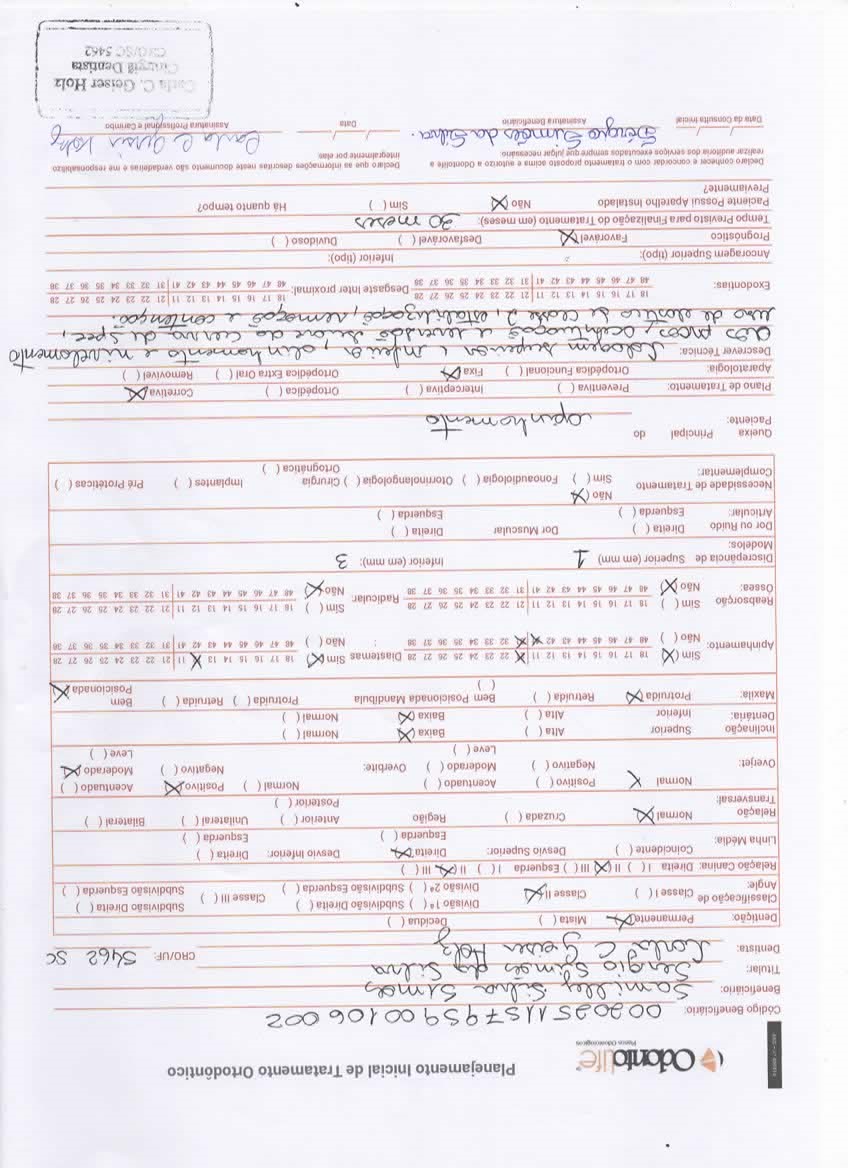 Odontolife
Planos Odontológicos
Planejamento Inicial de Tratamento Ortodôntico
Código Beneficiário: 00202511579590010 6002
Beneficiário: Samilley Silva Simoes
Titular: Sergio Simões da Silva
Dentista: Carla C Geiser Holz CRO/UF: 5462 SC
Dentição: Permanente (X) Mista ( ) Decídua ( )
Classificação de Angle: Classe I ( ) Classe II (X) Divisão 1ª ( ) Subdivisão Direita ( ) Classe III ( ) Subdivisão Direita ( )
Divisão 2ª ( ) Subdivisão Esquerda ( ) Subdivisão Esquerda ( )
Relação Canina: Direita I ( ) II (X) III ( ) Esquerda I ( ) II (X) III ( )
Linha Média: Coincidente ( ) Desvio Superior: Direita (X) Desvio Inferior: Direita ( )
Esquerda ( ) Esquerda ( )
Relação Transversal: Normal (X) Cruzada ( ) Região Anterior ( ) Unilateral ( ) Bilateral ( )
Posterior ( )
Overjet: Normal X Positivo ( ) Acentuado ( ) Overbite: Normal ( ) Positivo (X) Acentuado ( )
Negativo ( ) Moderado ( ) Negativo ( ) Moderado (X)
Leve ( ) Leve ( )
Inclinação Dentária: Superior Alta ( ) Baixa (X) Normal ( )
Inferior Alta ( ) Baixa (X) Normal ( )
Maxila: Protruída (X) Retruída ( ) Bem Posicionada ( ) Mandíbula Protruída ( ) Retruída ( ) Bem Posicionada (X)
Apinhamento: Sim (X) 18 17 16 15 14 13 12 11 21 22 23 24 25 26 27 28 Diastemas Sim (X) 18 17 16 15 14 13 X 11 21 22 23 24 25 26 27 28
Não ( ) 48 47 46 45 44 43 42 X X 32 33 34 35 36 37 38 : Não ( ) 48 47 46 45 44 43 42 41 31 32 33 34 35 36 37 38
Reabsorção Óssea: Sim ( ) 18 17 16 15 14 13 12 11 21 22 23 24 25 26 27 28 Radicular: Sim ( ) 18 17 16 15 14 13 12 11 21 22 23 24 25 26 27 28
Não (X) 48 47 46 45 44 43 42 41 31 32 33 34 35 36 37 38 Não (X) 48 47 46 45 44 43 42 41 31 32 33 34 35 36 37 38
Discrepância de Modelos: Superior (em mm) 1 Inferior (em mm): 3
Dor ou Ruído Articular: Direita ( ) Dor Muscular Direita ( )
Esquerda ( ) Esquerda ( )
Necessidade de Tratamento Complementar: Não (X)
Sim ( ) Fonoaudiologia ( ) Otorrinolangologia ( ) Cirurgia Ortognática ( ) Implantes ( ) Pré Protéticas ( )
Queixa Principal do Paciente: apinhamento
Plano de Tratamento: Preventiva ( ) Interceptiva ( ) Ortopédica ( ) Corretiva (X)
Aparatologia: Ortopédica Funcional ( ) Fixa (X) Ortopédica Extra Oral ( ) Removível ( )
Descrever Técnica: Colagem superior e inferior, alinhamento e nivelamento
dos arcos, acentuação e reversão suave da curva de Spee,
uso de elástico de classe 2, estabilização, remoção e contenção.
Exodontias: 18 17 16 15 14 13 12 11 21 22 23 24 25 26 27 28 Desgaste Inter proximal: 18 17 16 15 14 13 12 11 21 22 23 24 25 26 27 28
48 47 46 45 44 43 42 41 31 32 33 34 35 36 37 38 48 47 46 45 44 43 42 41 31 32 33 34 35 36 37 38
Ancoragem Superior (tipo): Inferior (tipo):
Prognóstico Favorável (X) Desfavorável ( ) Duvidoso ( )
Tempo Previsto para Finalização do Tratamento (em meses): 30 meses
Paciente Possui Aparelho Instalado Previamente? Não (X) Sim ( ) Há quanto tempo?
Declaro conhecer e concordar com o tratamento proposto acima e autorizo a Odontolife a
realizar auditoria dos serviços executados sempre que julgar necessário
Declaro que as informações descritas neste documento são verdadeiras e me responsabilizo
integralmente por elas
__/__/__ Sérgio Simões da Silva. __/__/__ Carla C Geiser Holz
Data da Consulta Inicial Assinatura Beneficiário Data Assinatura Profissional e Carimbo
Carla C. Geiser Holz
Cirurgiã Dentista
CRO/SC 5462